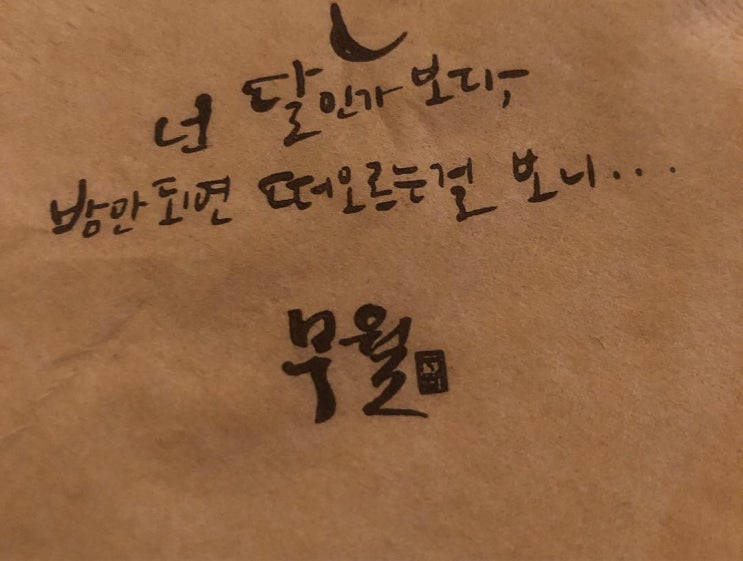 넌 달인가 보다,
밤만 되면 떠오르는걸 보니...
무월